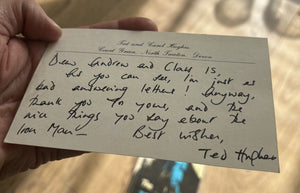 Ted and Carol Hughes
Court Green, North Tawton, Devon
Dear Andrew and Class 1S,
As you can see, I'm just as
bad answering letters! Anyway,
thank you for yours, and the
nice things you say about the
Iron Man —
Best wishes,
Ted Hughes